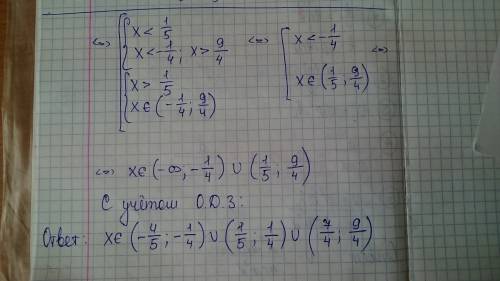 <=> [ { x < 1/5
x < -1/4; x > 9/4
{ x > 1/5
x ∈ (-1/4; 9/4)
<=> [ x < -1/4
x ∈ (1/5; 9/4) <=>
<=> x ∈ (-∞; -1/4) ∪ (1/5; 9/4)
С учётом О.Д.З:
Ответ: x ∈ (-4/5; -1/4) ∪ (1/5; 1/4) ∪ (7/4; 9/4)